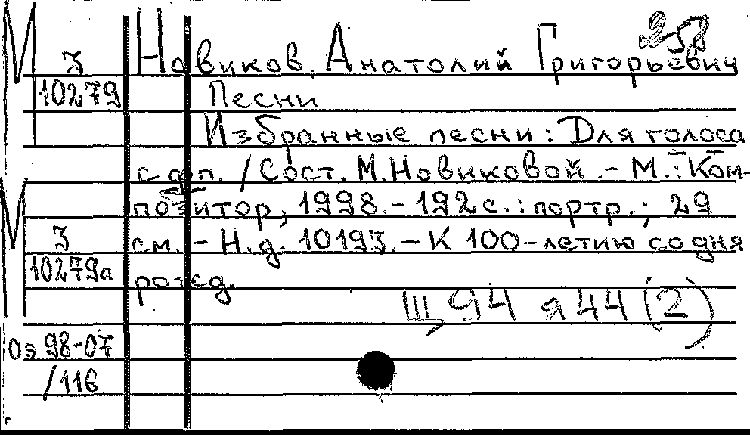 258
М З Новиков, Анатолий Григорьевич
10279 Песни
Избранные песни: Для голоса
с фп. / Сост. М. Новиковой. - М.: Ком-
позитор, 1998. - 192 с.: портр.; 29
М З см. - Н.д. 10193. - К 100-летию со дня
10279а рожд.
Щ 94 я 44 (2)
Оз 98-07
/116